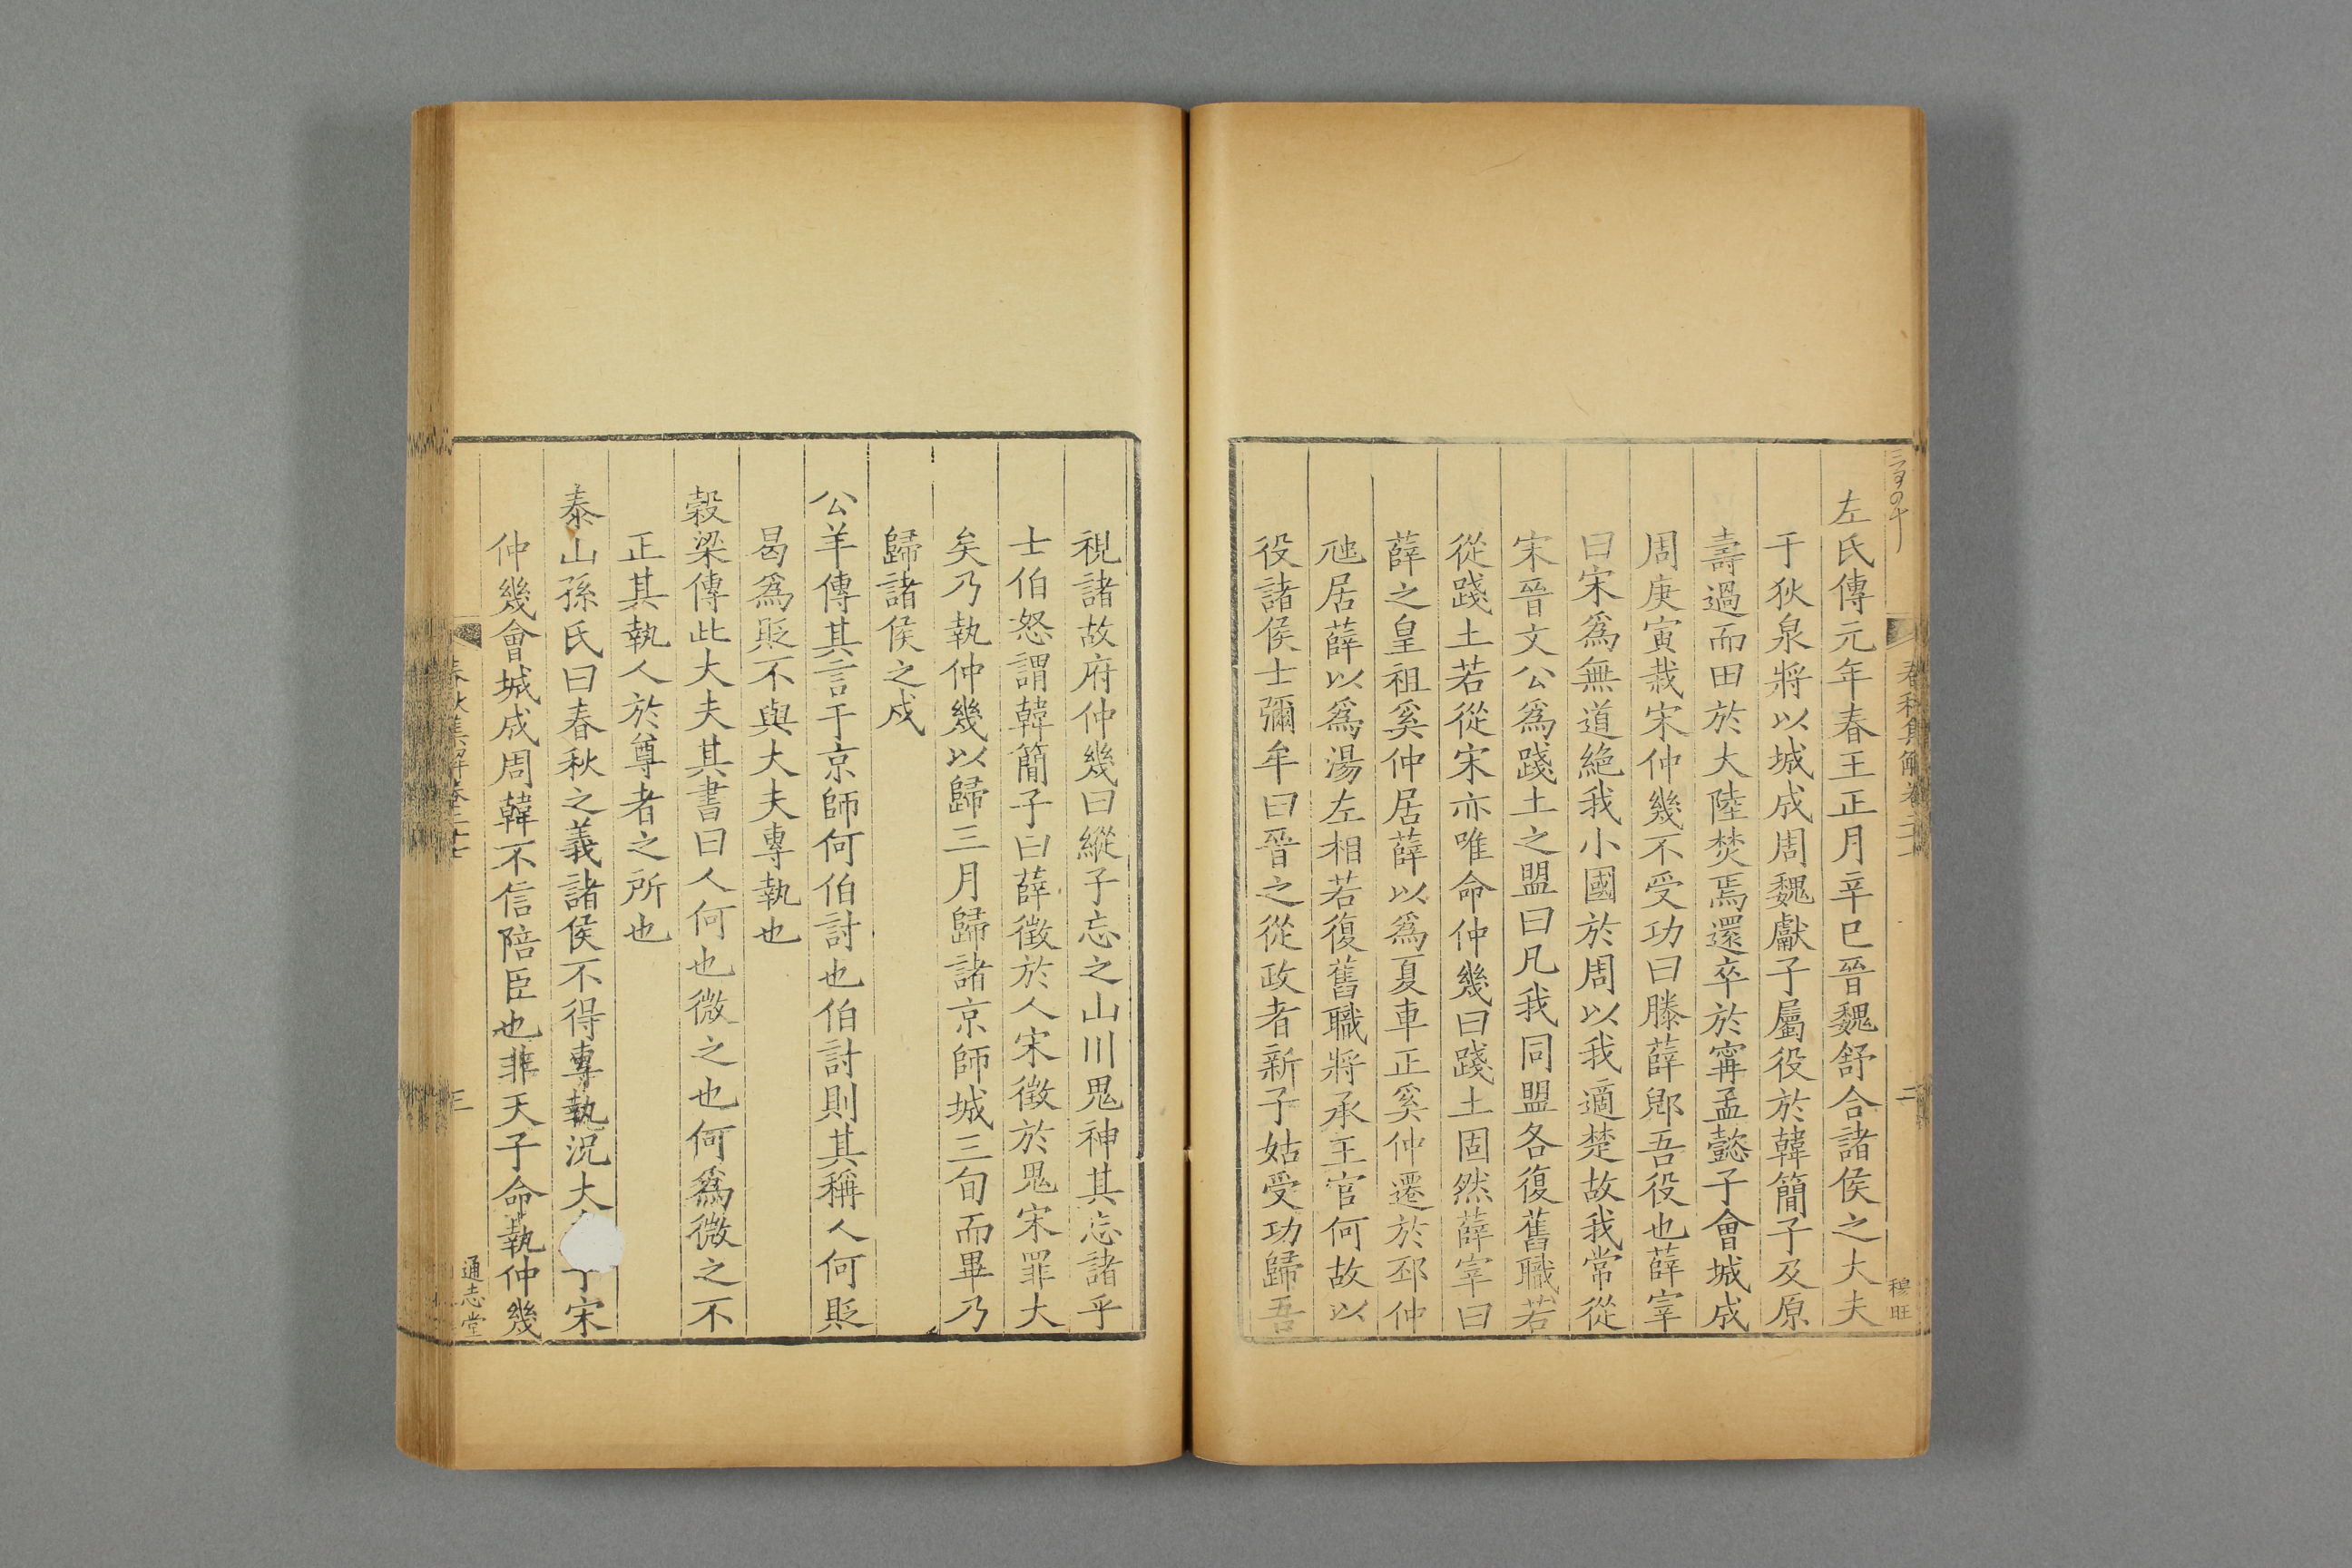 左氏傳元年春王正月辛巳晉魏舒合諸侯之大夫
于狄泉將以城成周魏獻子屬役於韓簡子及原
壽過而田於大陸焚焉還卒於甯孟懿子會城成
周庚寅栽宋仲幾不受功曰滕薛郳吾役也薛宰
曰宋爲無道絶我小國於周以我適楚故我常從
宋晉文公爲踐土之盟曰凡我同盟各復舊職若
從踐土若從宋亦唯命仲幾曰踐土固然薛宰曰
薛之皇祖奚仲居薛以爲夏車正奚仲遷於邳仲
虺居薛以爲湯左相若復舊職將承王官何故以
役諸侯士彌牟曰晉之從政者新子姑受功歸吾
視諸故府仲幾曰縱子忘之山川鬼神其忘諸乎
士伯怒謂韓簡子曰薛徵於人宋徵於鬼宋罪大
矣乃執仲幾以歸三月歸諸京師城三旬而畢乃
歸諸侯之戍
公羊傳其言于京師何伯討也伯討則其稱人何貶
曷爲貶不與大夫專執也
穀梁傳此大夫其書曰人何也微之也何爲微之不
正其執人於尊者之所也
泰山孫氏曰春秋之義諸侯不得專執況大 宋
仲幾會城成周韓不信陪臣也非天子命執仲幾
春秋集解卷二十
二
穆旺
三
通志堂